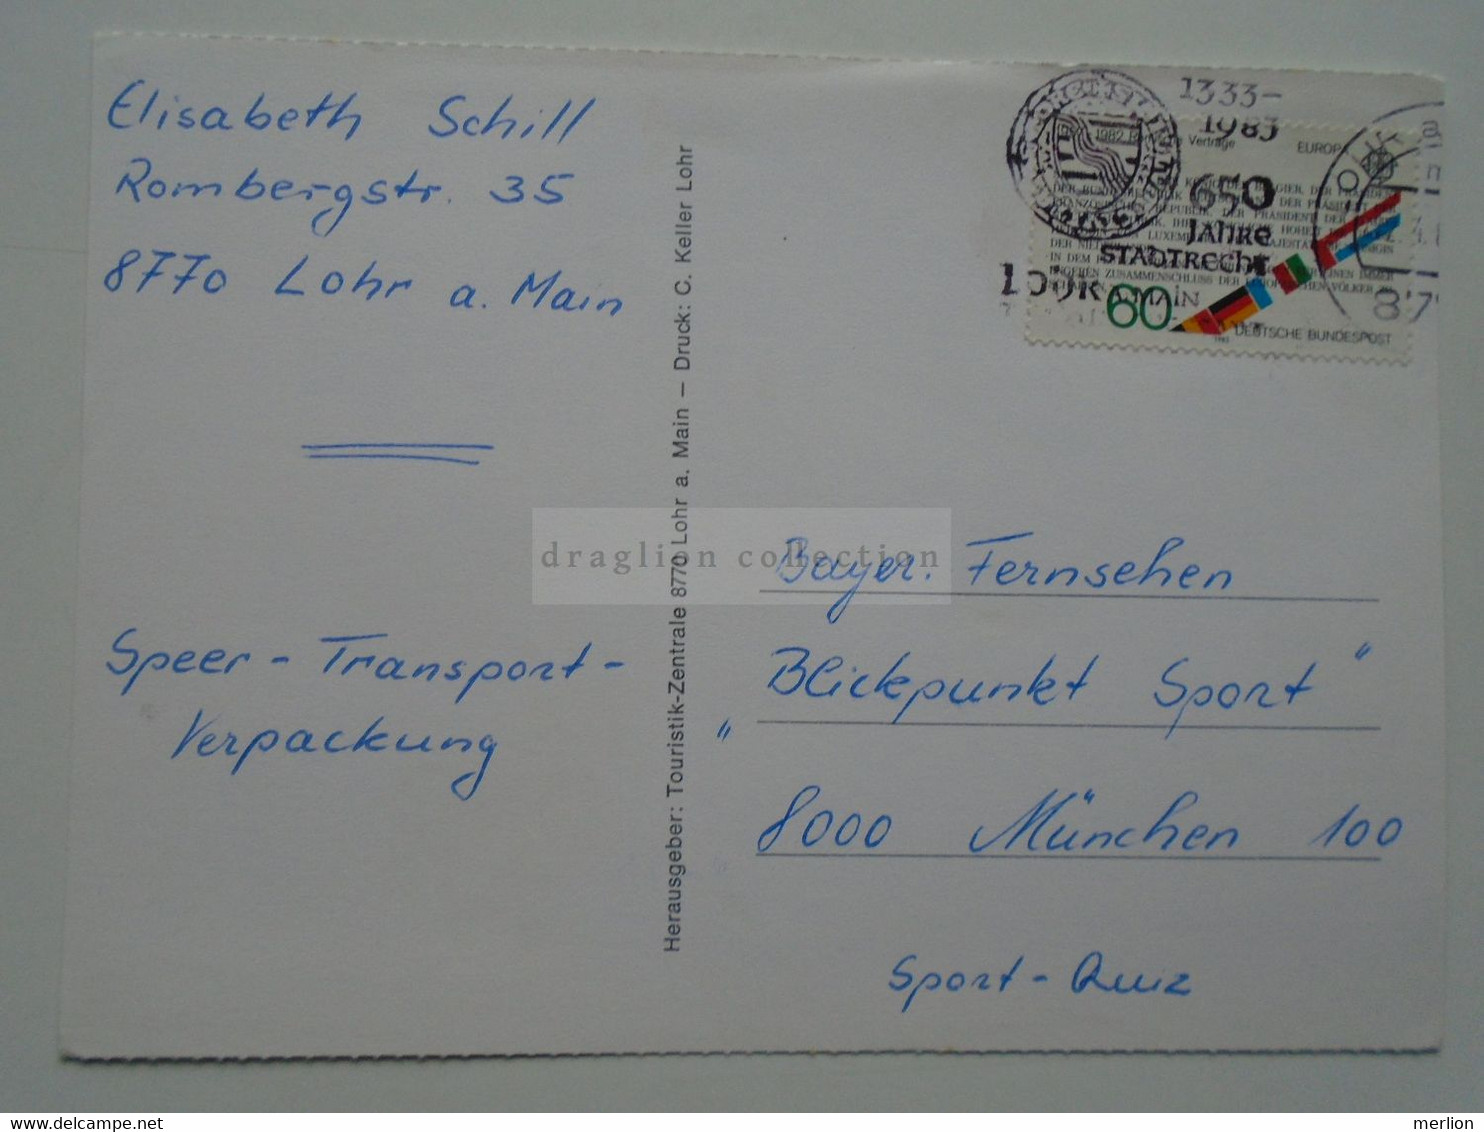 Elisabeth Schill
Rombergstr. 35
8770 Lohr a. Main
Speer-Transport-
Verpackung
Herausgeber: Touristik-Zentrale 8770 Lohr a. Main – Druck: C. Keller Lohr
1333-
1983
650
Jahre
Stadtrecht
Lohr a. Main
1982 Verträge
EUROPA
60
DEUTSCHE BUNDESPOST
draglion collection
Bayer. Fernsehen
„Blickpunkt Sport“
8000 München 100
Sport-Quiz
merlion